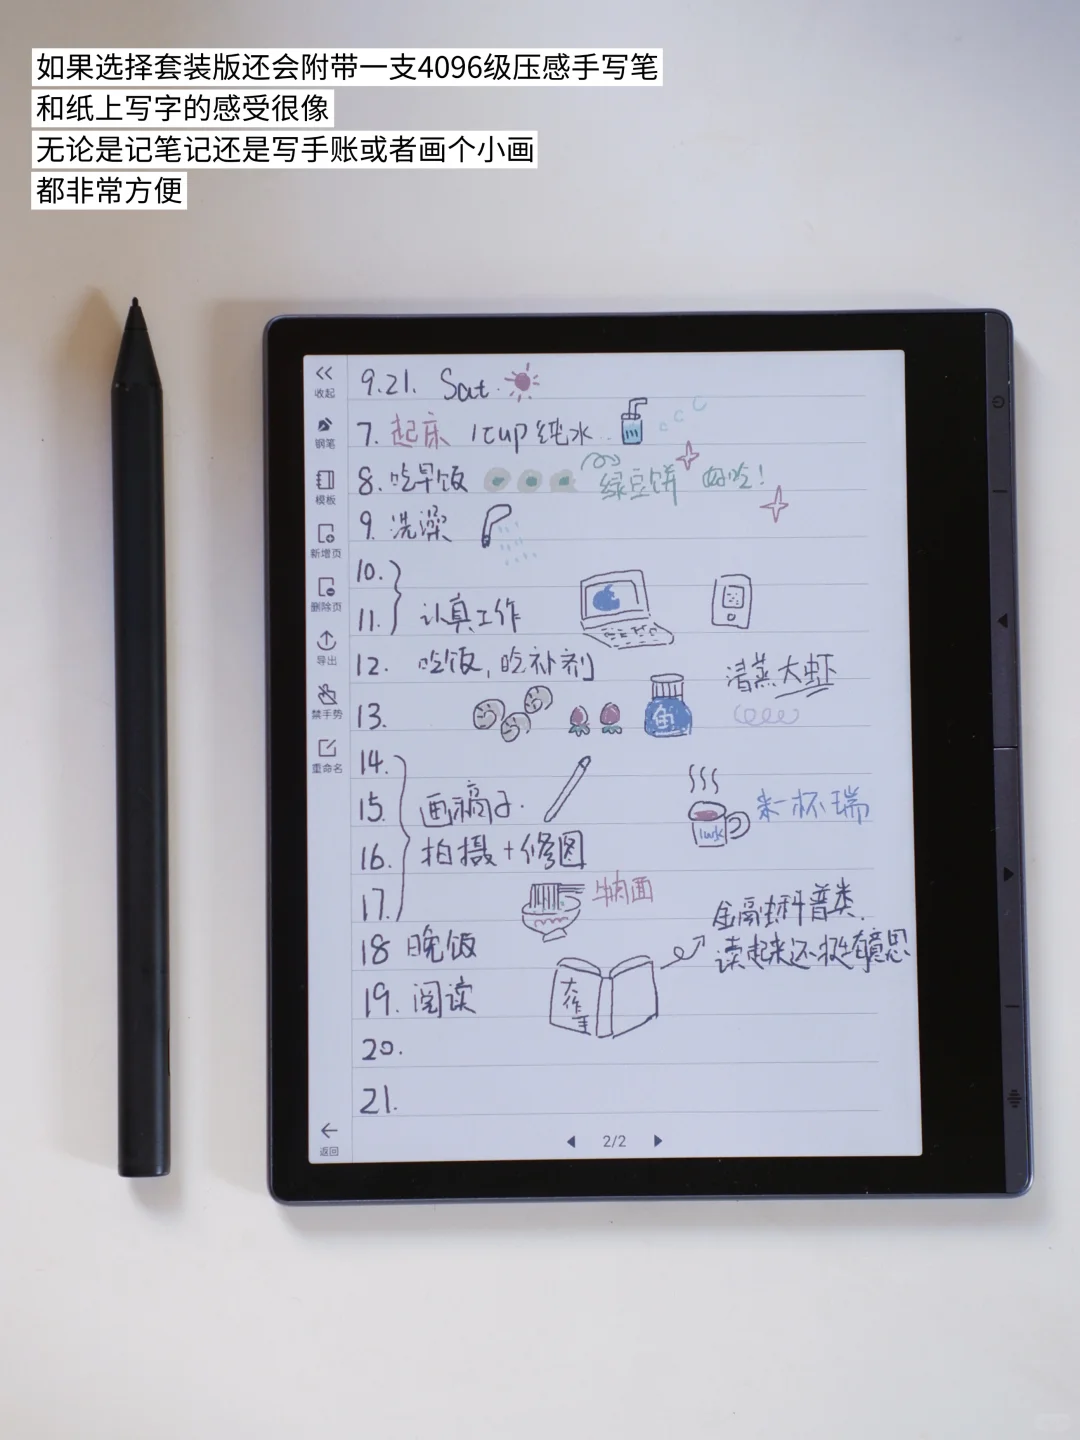 如果选择套装版还会附带一支4096级压感手写笔
和纸上写字的感受很像
无论是记笔记还是写手账或者画个小画
都非常方便
收起
钢笔
模板
新增页
删除页
导出
禁手势
重命名
返回
9.21. Sat.
7. 起床 1cup 纯水
8. 吃早饭 绿豆饼 好吃!
9. 洗澡
10.
11. 认真工作
12. 吃饭,吃补剂 清蒸大虾
13. 鱼
14.
15. 画稿子. 来一杯瑞
luck
16. 拍摄+修图
17. 牛肉面
18 晚饭
金融科普类,
读起来还挺有意思
19. 阅读
大作手
20.
21.
2/2